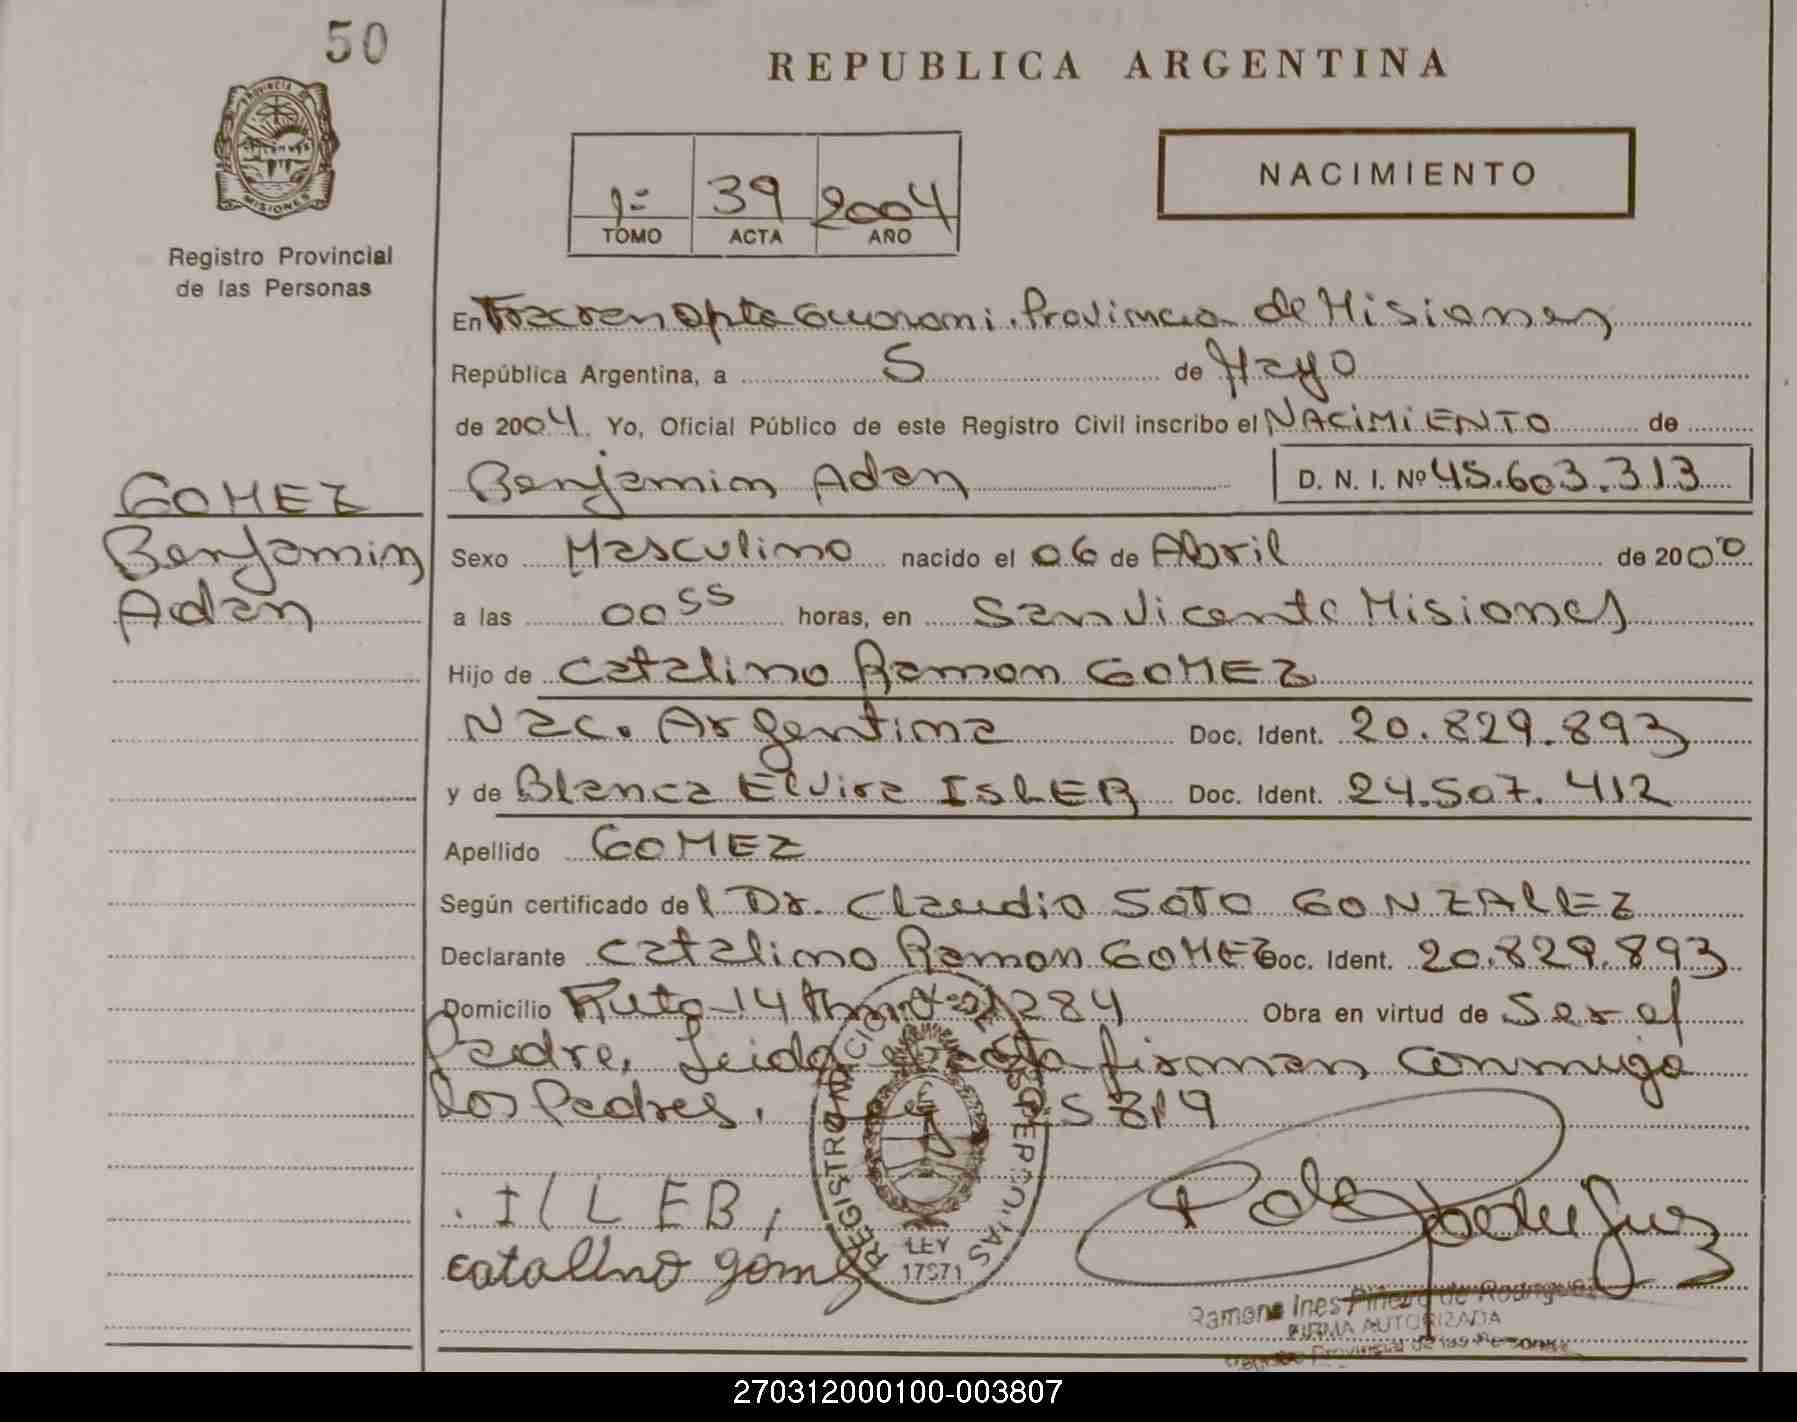 50
REPUBLICA ARGENTINA
PROVINCIA DE
MISIONES
Registro Provincial
de las Personas
NACIMIENTO
1= 39 2004
TOMO ACTA AÑO
En Fracran Dpto Guarani. Provincia de Misiones
República Argentina, a 5 de Mayo
de 2004. Yo, Oficial Público de este Registro Civil inscribo el NACIMIENTO de
Benjamin Adan D. N. I. Nº 45.603.313
GOMEZ
Benjamin
Adan
Sexo Masculino nacido el 06 de Abril de 2000
a las 00 55 horas, en San Vicente Misiones
Hijo de Catalino Ramon GOMEZ
Nac. Argentina Doc. Ident. 20.829.893
y de Blanca Elvira ISLER Doc. Ident. 24.507.412
Apellido GOMEZ
Según certificado del Dr. Claudio SOTO GONZALEZ
Declarante Catalino Ramon GOMEZ Doc. Ident. 20.829.893
Domicilio Ruta 14 284 Obra en virtud de Ser el
Padre, Leida firman conmigo
los Padres.
catalino gomez
REGISTRO NACIONAL DE LAS PERSONAS
LEY
17671
Ramona Ines Piñeiro de Rodriguez
FIRMA AUTORIZADA
Registro Provincial de las Personas
270312000100-003807